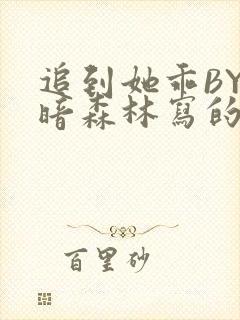 追到她乖BY
暗森林寫的
百里砂